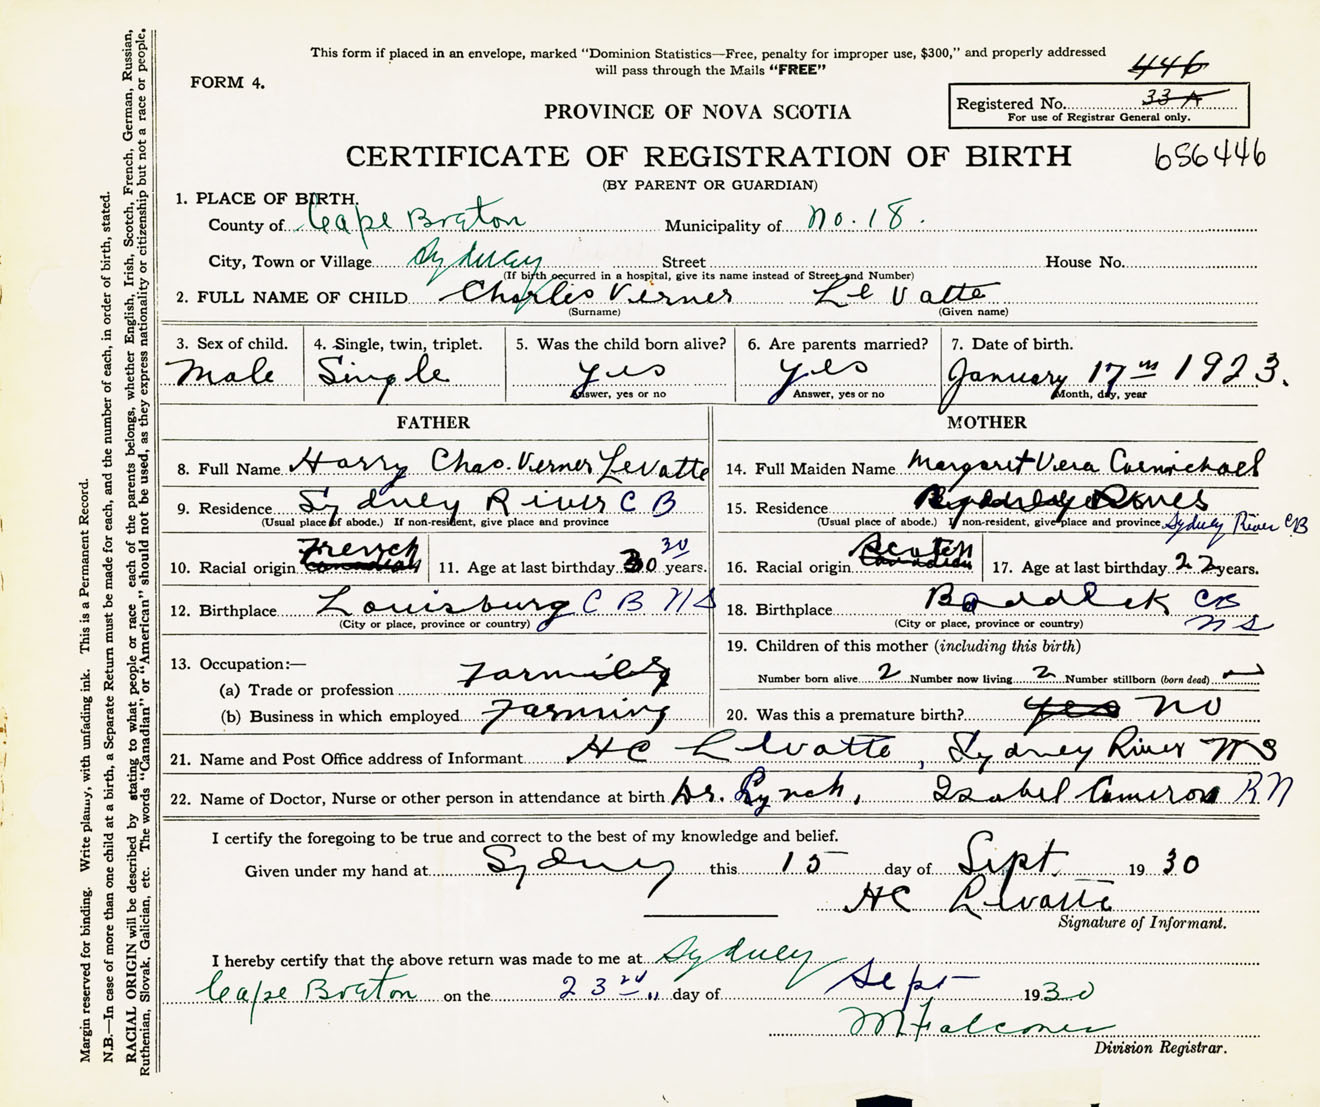 This form if placed in an envelope, marked "Dominion Statistics—Free, penalty for improper use, $300," and properly addressed
will pass through the Mails "FREE"
446
FORM 4.
Registered No. 33 A
For use of Registrar General only.
PROVINCE OF NOVA SCOTIA
CERTIFICATE OF REGISTRATION OF BIRTH
656446
(BY PARENT OR GUARDIAN)
1. PLACE OF BIRTH.
County of Cape Breton Municipality of No. 18.
City, Town or Village Sydney Street House No.
(If birth occurred in a hospital, give its name instead of Street and Number)
2. FULL NAME OF CHILD Charles Verner Le Vatte
(Surname) (Given name)
3. Sex of child. 4. Single, twin, triplet. 5. Was the child born alive? 6. Are parents married? 7. Date of birth.
Male Single yes yes January 17th 1923.
Answer, yes or no Answer, yes or no Month, day, year
FATHER MOTHER
8. Full Name Harry Chas. Verner LeVatte 14. Full Maiden Name Margaret Vera Carmichael
9. Residence Sydney River C B 15. Residence
(Usual place of abode.) If non-resident, give place and province (Usual place of abode.) If non-resident, give place and province Sydney River CB
10. Racial origin French Canadian 11. Age at last birthday 30 30 years. 16. Racial origin Scotch Canadian 17. Age at last birthday 22 years.
12. Birthplace Louisburg C B N S 18. Birthplace Baddeck CB
N S
(City or place, province or country) (City or place, province or country)
13. Occupation:— 19. Children of this mother (including this birth)
(a) Trade or profession Farming Number born alive 2 Number now living 2 Number stillborn (born dead) —
(b) Business in which employed Farming 20. Was this a premature birth? yes no
21. Name and Post Office address of Informant HC LeVatte, Sydney River N S
22. Name of Doctor, Nurse or other person in attendance at birth Dr. Lynch, Isabel Cameron RN
I certify the foregoing to be true and correct to the best of my knowledge and belief.
Given under my hand at Sydney this 15 day of Sept. 1930
HC LeVatte
Signature of Informant.
I hereby certify that the above return was made to me at Sydney
Cape Breton on the 23rd day of Sept 1930
M Falconer
Division Registrar.
Margin reserved for binding. Write plainly, with unfading ink. This is a Permanent Record.
N.B.—In case of more than one child at a birth, a Separate Return must be made for each, and the number of each, in order of birth, stated.
RACIAL ORIGIN will be described by stating to what people or race each of the parents belongs, whether English, Irish, Scotch, French, German, Russian,
Ruthenian, Slovak, Galician, etc. The words "Canadian" or "American" should not be used, as they express nationality or citizenship but not a race or people.